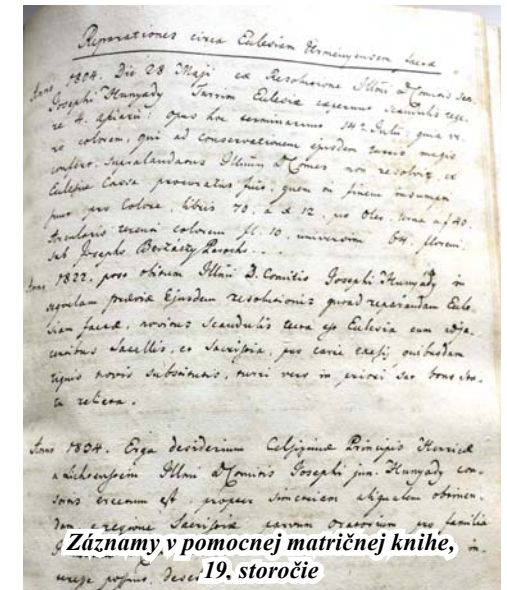 Reparationes circa Eclesiam Ürményensem factæ
Anno 1804. Die 28 Maji ex Resolutione Illmi D Comitis Sen.
Josephi Hunyady Turrim Eclesiæ cæpimus Scandulis tege
re 4. opus hoc terminavimus 14ta Julii; quia ve
ro colorem, qui ad conservationem ejusdem turris magis
Supralaudatus Illmus D Comes non resolvit, ex
Eclesiæ Cassa procuratus fuit, quem in finem insumpti
sunt pro Colore, libris 70. a x 12. pro Oleo, urna a f 40.
colorem fl. 10. universim 64. floreni
sub Josepho Parocho...
Anno 1822. post obitum Illmi D. Comitis Josephi Hunyady in
sequelam præviæ Ejusdem resolutionis quoad reparandam Ecle-
siam factæ, novitus Scandulis tecta est Eclesia cum adja-
centibus Sacellis, et Sacristia, pro carie exesis quibusdam
tignis novis substitutis, turri vero in priori suo bono sta-
tu relicta.
Anno 1834. Erga desiderium Celsissimæ Principis Henricæ
a Lichtenstein Illmi D Comitis Josephi jun. Hunyady con-
sortis erectum est propter simetriam aliqualem obtinen-
dam e regione Sacristiæ parvum oratorium pro familia
Záznamy v pomocnej matričnej knihe,
in-
19. storočie